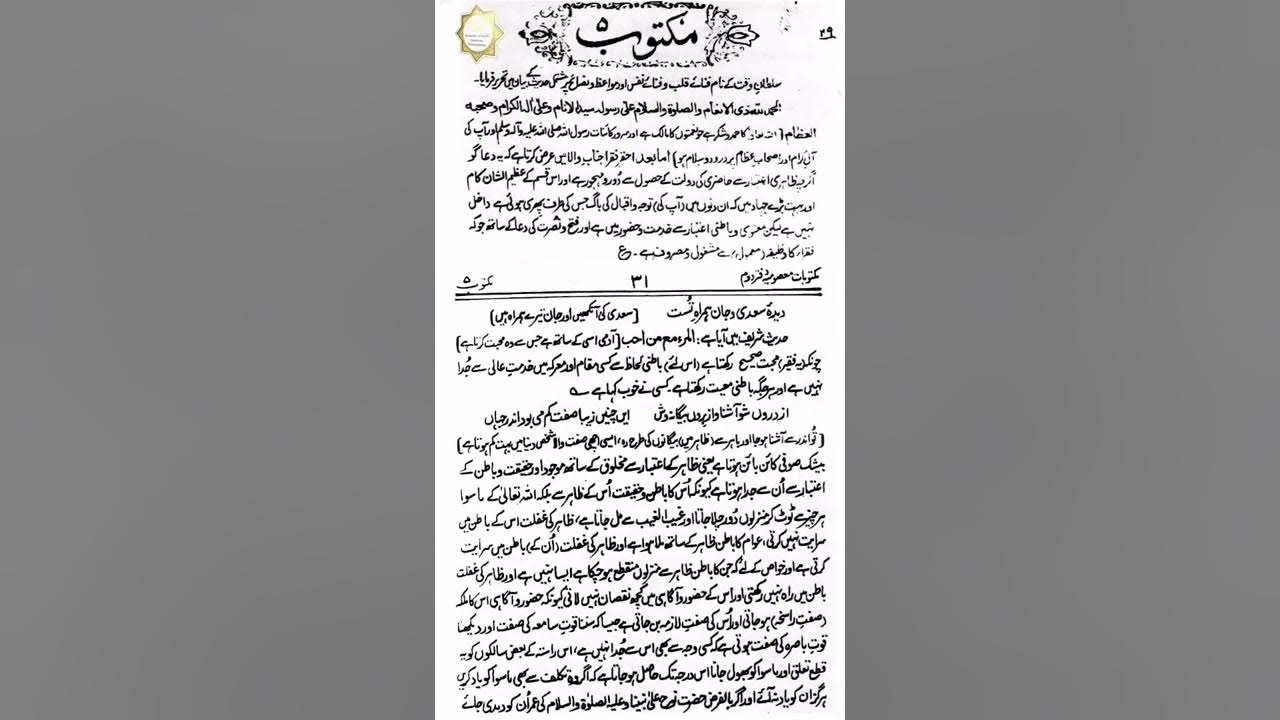 ۳۹
مکتوب ۵
سلطانِ وقت کے نام فنائے قلب و فنائے نفس اور مواعظ و نصائح پر مشتمل حدیث کے بیان میں تحریر فرمایا۔
الحمد للہ ذی الانعام والصلوٰۃ والسلام علیٰ رسولہ سید الانام وعلیٰ اٰلہ الکرام وصحبہ
العظام (اللہ تعالیٰ کا حمد و شکر ہے جو نعمتوں کا مالک ہے اور سرورِ کائنات رسول اللہ صلی اللہ علیہ وآلہ وسلم اور آپ کی
آلِ کرام اور اصحابِ عظام پر درود و سلام ہو) اما بعد احقر فقرا جنابِ والا میں عرض کرتا ہے کہ یہ دعا گو
اگرچہ ظاہری اعتبار سے حاضری کی دولت کے حصول سے دُور و مہجور ہے اور اس قسم کے عظیم الشان کام
اور بہت بڑے جہاد میں کہ ان دنوں میں (آپ کی) توجہ و اقبال کی باگ جس کی طرف پھری ہوئی ہے داخل
نہیں ہے لیکن معنوی و باطنی اعتبار سے خدمت و حضور میں ہے اور فتح و نصرت کی دعا کے ساتھ جو کہ
فقرا کا وظیفہ (معمول) ہے مشغول و مصروف ہے۔ ع
مکتوبات معصومیہ دفتر دوم ۳۱ مکتوب ۵
دیدۂ سعدی و جان ہمراہِ تُست (سعدی کی آنکھیں اور جان تیرے ہمراہ ہیں)
حدیث شریف میں آیا ہے: المرء مع من احب (آدمی اسی کے ساتھ ہے جس سے وہ محبت کرتا ہے)
چونکہ یہ فقیر محبت صحیح رکھتا ہے (اس لئے) باطنی لحاظ سے کسی مقام اور معرکہ میں خدمتِ عالی سے جُدا
نہیں ہے اور ہر جگہ باطنی معیت رکھتا ہے۔ کسی نے خوب کہا ہے ؎
از دروں شو آشنا و از بروں بیگانہ وش این چنیں زیبا صفت کم می بود اندر جہاں
(تُو اندر سے آشنا ہو جا اور باہر سے (ظاہر میں) بیگانوں کی طرح رہ، ایسی اچھی صفت والا شخص دنیا میں بہت کم ہوتا ہے)
بیشک صوفی کائن بائن ہوتا ہے یعنی ظاہر کے اعتبار سے مخلوق کے ساتھ موجود اور حقیقت و باطن کے
اعتبار سے اُن سے جدا ہوتا ہے کیونکہ اُس کا باطن و حقیقت اُس کے ظاہر سے بلکہ اللہ تعالیٰ کے ماسوا
ہر چیز سے ٹوٹ کر منزلوں دُور چلا جاتا اور غیب الغیب سے مل جاتا ہے، ظاہر کی غفلت اس کے باطن میں
سرایت نہیں کرتی، عوام کا باطن ظاہر کے ساتھ ملا ہوا ہے اور ظاہر کی غفلت (اُن کے) باطن میں سرایت
کرتی ہے اور خواص کے لئے کہ جن کا باطن ظاہر سے منزلوں منقطع ہو چکا ہے ایسا نہیں ہے اور ظاہر کی غفلت
باطن میں راہ نہیں رکھتی اور اس کے حضور و آگاہی میں کچھ نقصان نہیں لاتی کیونکہ حضور و آگاہی اس کا ملکہ
(صفتِ راسخہ) ہو جاتی اور اُس کی صفتِ لازمہ بن جاتی ہے جیسا کہ سننا قوتِ سامعہ کی صفت اور دیکھنا
قوتِ باصرہ کی صفت ہوتی ہے کہ کسی وجہ سے بھی اس سے جُدا نہیں ہے، اس راستہ کے بعض سالکوں کو یہ
قطع تعلق اور ماسوا کو بھول جانا اس درجہ تک حاصل ہو جاتا ہے کہ اگر وہ تکلف سے بھی ماسوا کو یاد کریں
ہرگز ان کو یاد نہ آئے اور اگر بالفرض حضرت نوح علیٰ نبینا وعلیہ الصلوٰۃ والسلام کی عمر اُن کو دیدی جائے